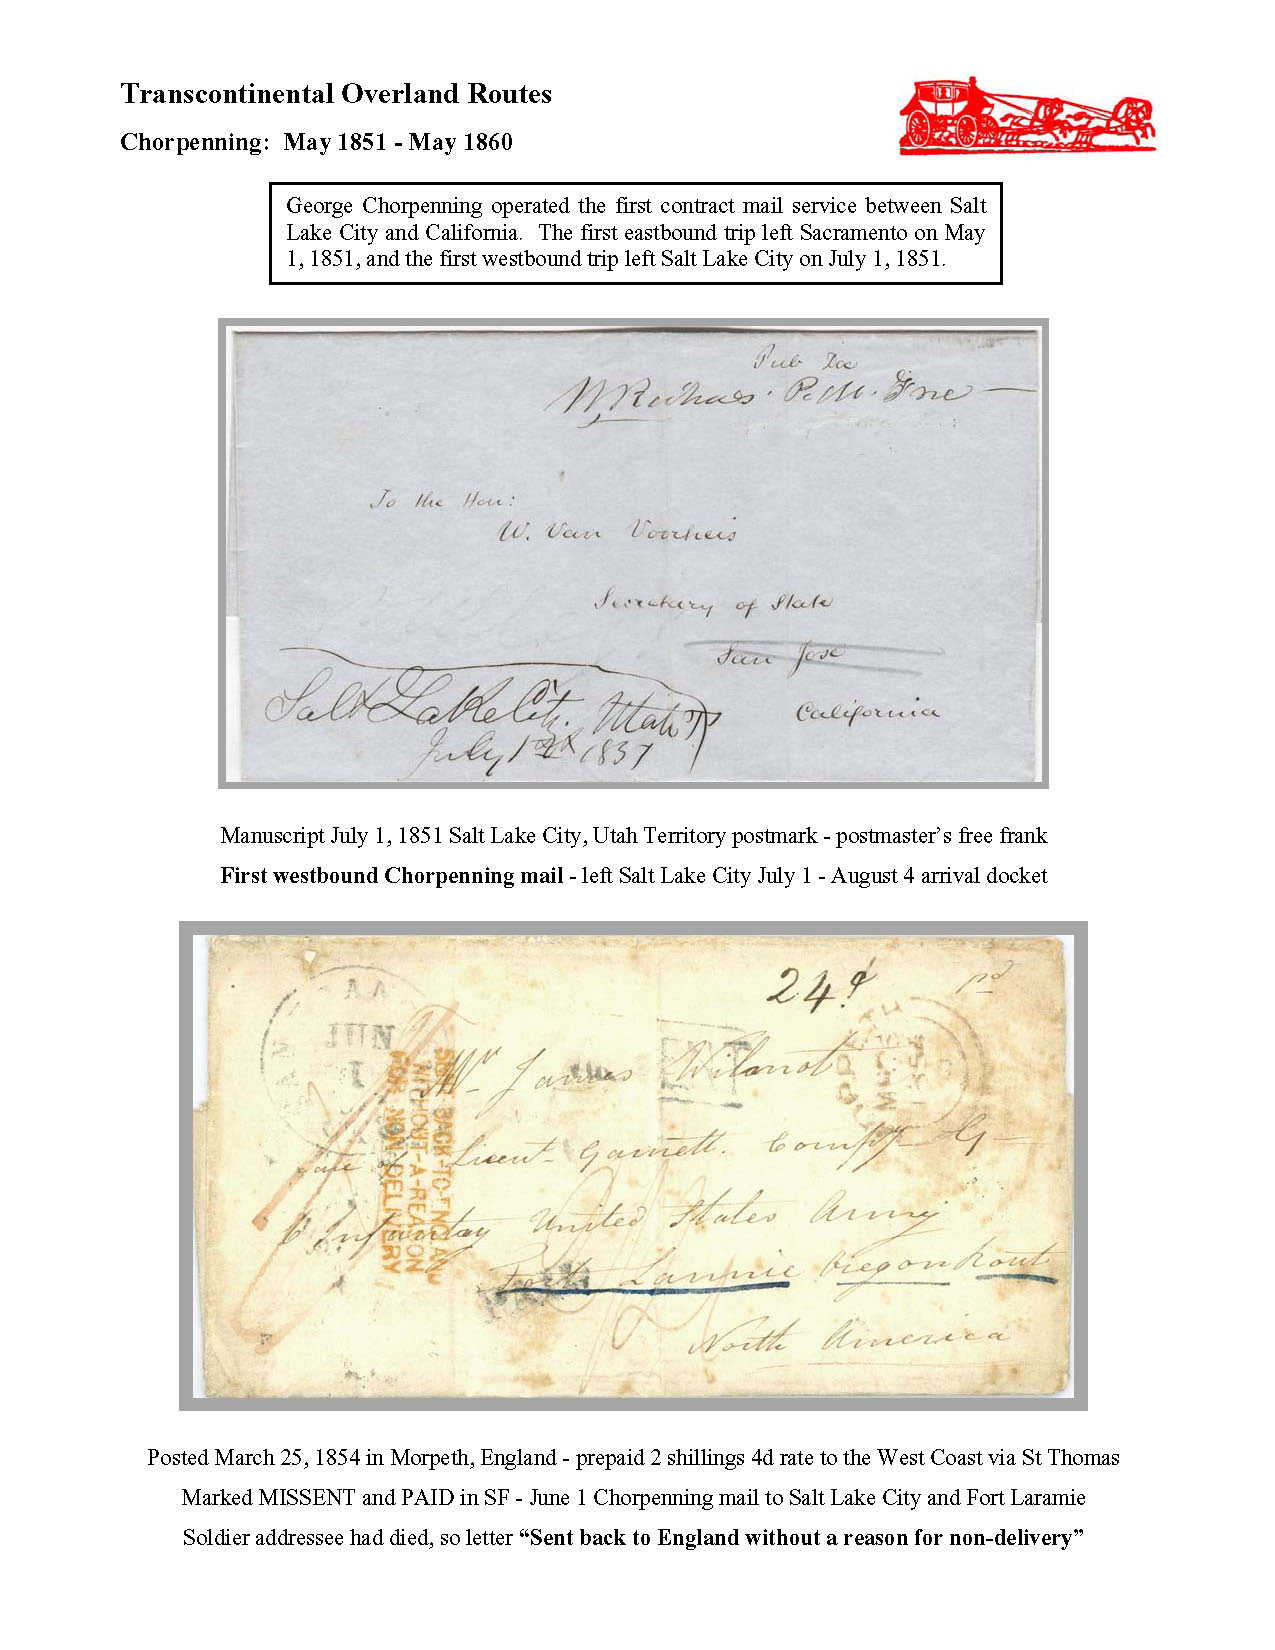 Transcontinental Overland Routes
Chorpenning: May 1851 - May 1860
George Chorpenning operated the first contract mail service between Salt
Lake City and California. The first eastbound trip left Sacramento on May
1, 1851, and the first westbound trip left Salt Lake City on July 1, 1851.
Pub Doc
P.M. Free
To the Hon:
W. Van Voorheis
Secretary of State
San Jose
California
Salt Lake City. Utah T
July 1st 1851
Manuscript July 1, 1851 Salt Lake City, Utah Territory postmark - postmaster’s free frank
First westbound Chorpenning mail - left Salt Lake City July 1 - August 4 arrival docket
24¢ pd
JUN
1
Mr James Wilmot
Care of Lieut Garnett. Compy G
6 Infantry United States Army
Fort Lannie Oregon Rout
North America
SENT-BACK-TO-ENGLAND
WITHOUT-A-REASON
FOR NON-DELIVERY
PAID
Posted March 25, 1854 in Morpeth, England - prepaid 2 shillings 4d rate to the West Coast via St Thomas
Marked MISSENT and PAID in SF - June 1 Chorpenning mail to Salt Lake City and Fort Laramie
Soldier addressee had died, so letter “Sent back to England without a reason for non-delivery”